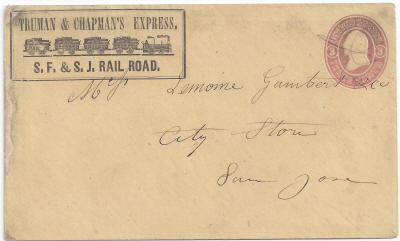 TRUMAN & CHAPMAN'S EXPRESS,
S. F. & S. J. RAIL ROAD.
Lemoine Gambert & Co
City Store
San Jose